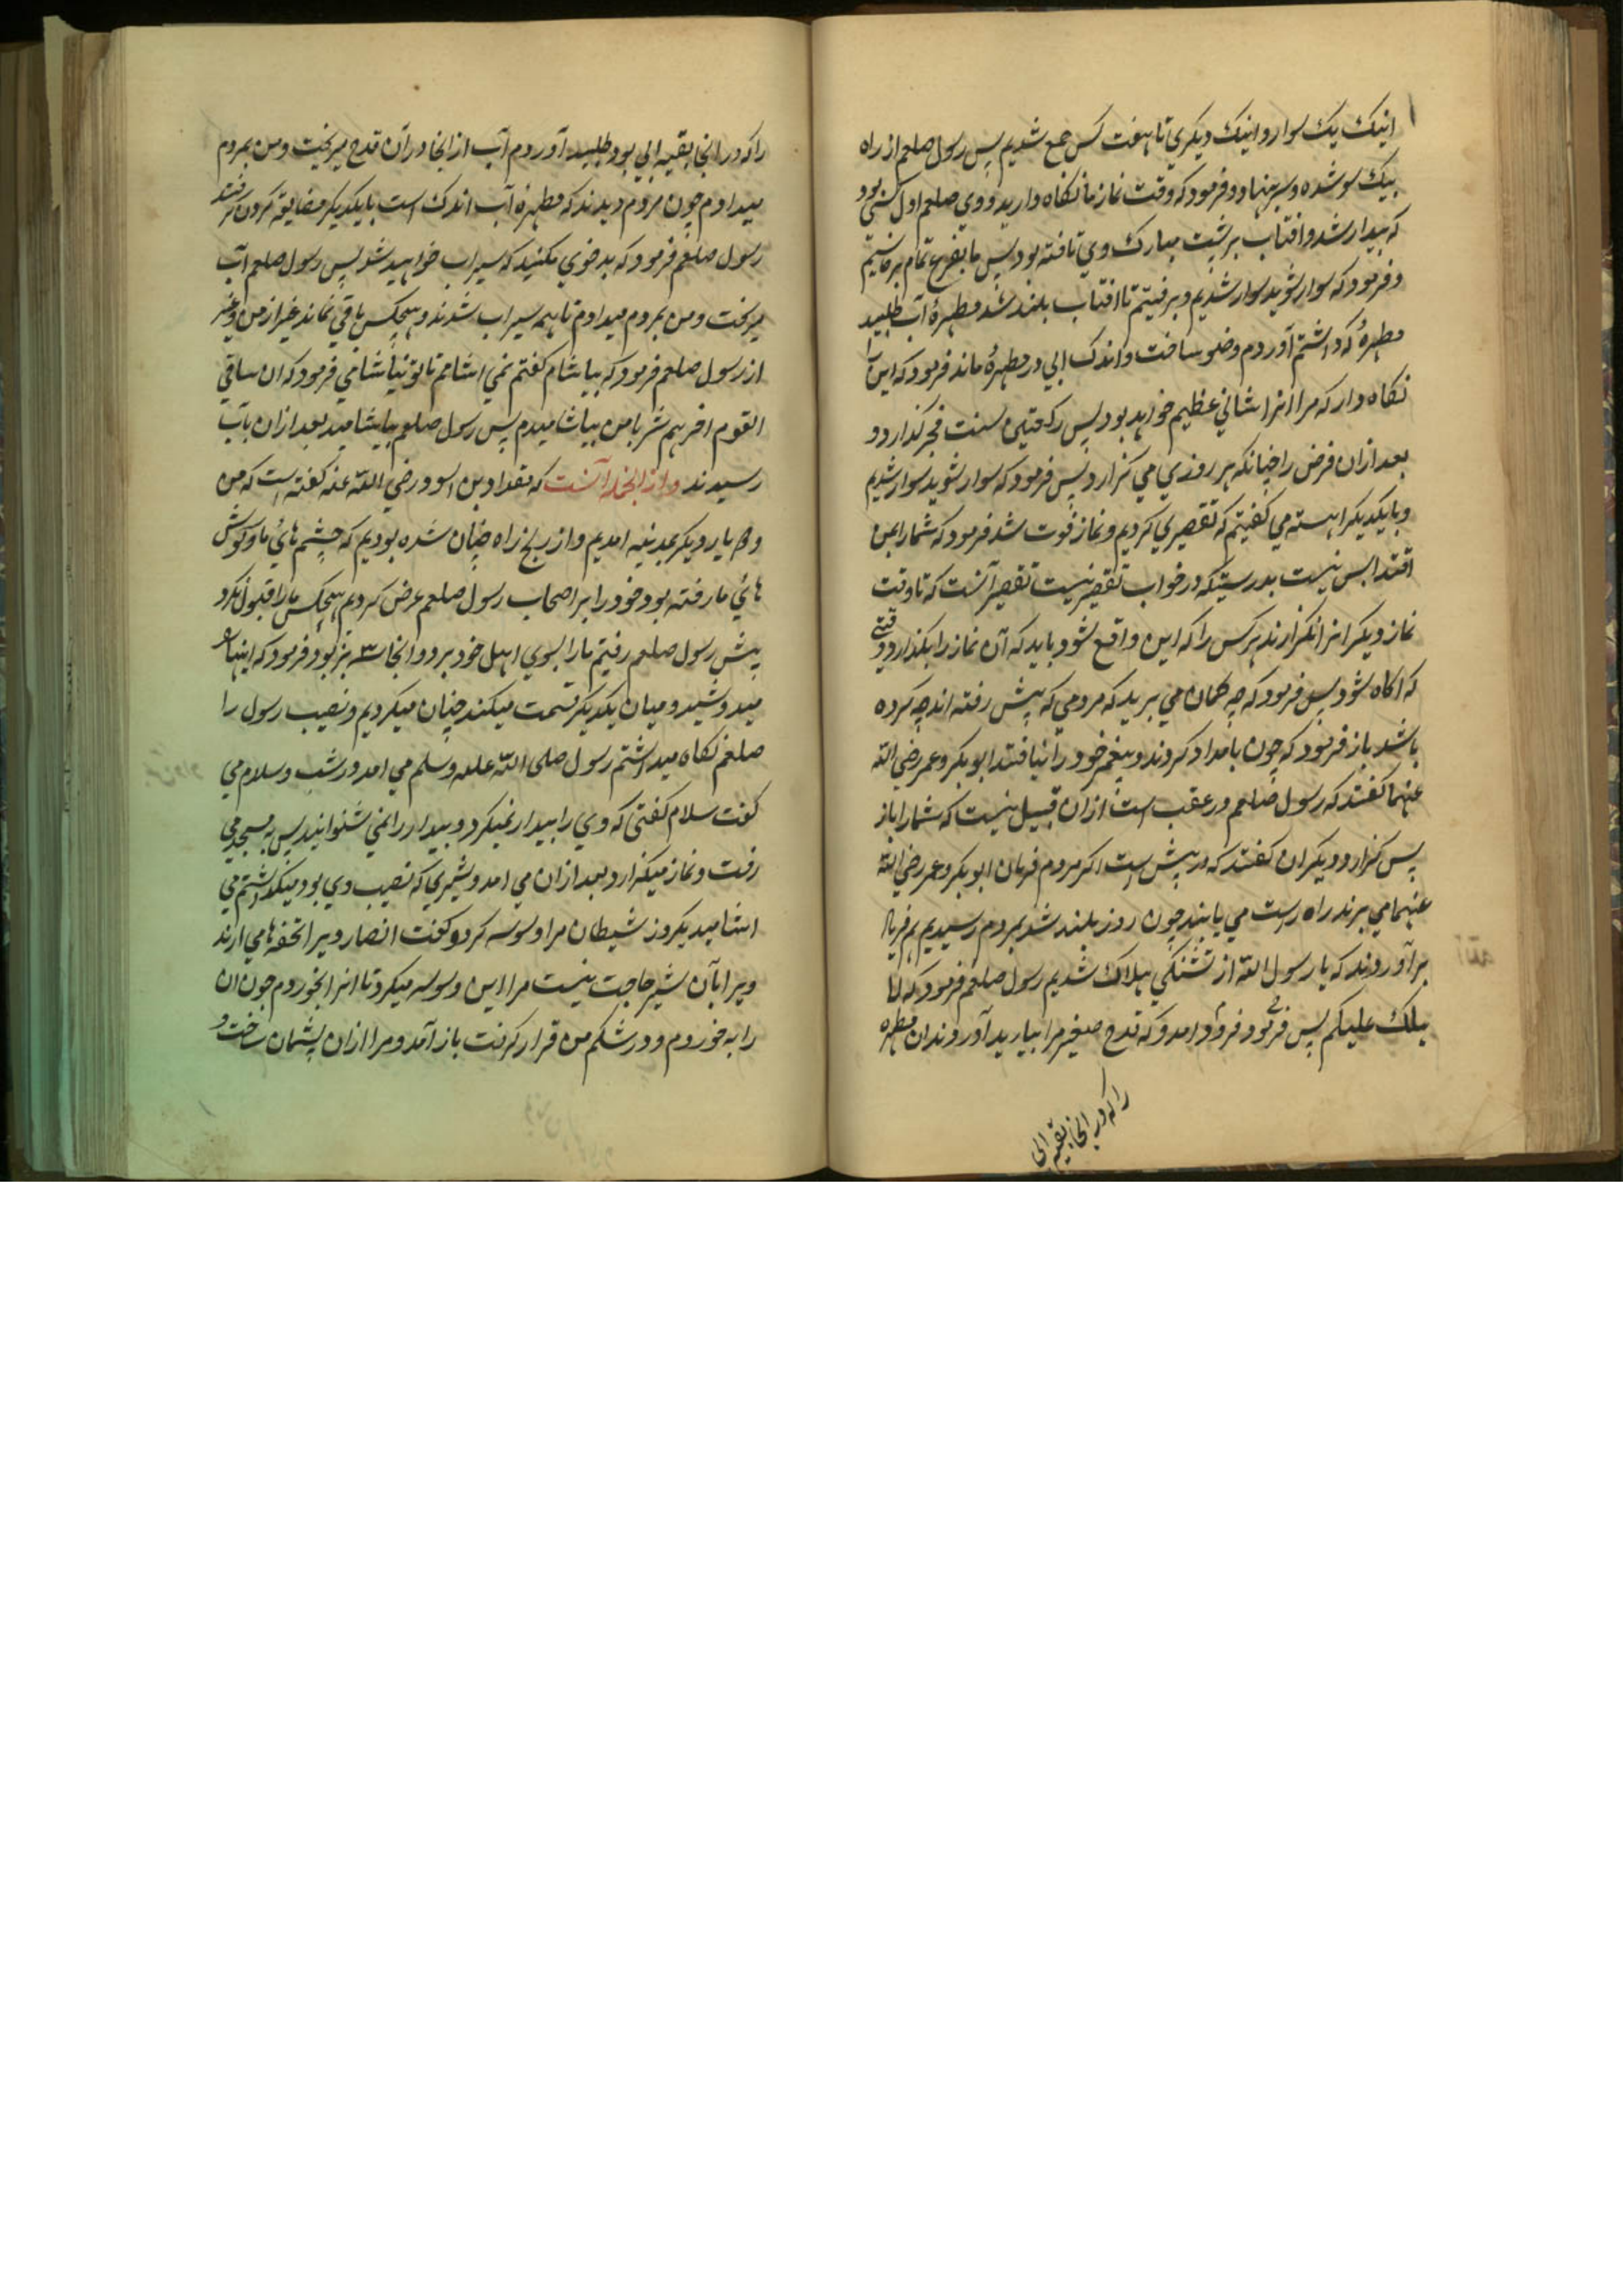 اینک یک سوار و اینک دیکري تا هفت کس جمع شدیم پس رسول صلعم از راه
بیک سو شده و سر بنهاد و فرمود که وقت نماز ما نکاه دارید و وي صلعم اول کسي بود
که بیدار شد و افتاب بر پشت مبارک وي تافته بود پس ما بفزع تمام برخاستیم
و فرمود که سوار شوید سوار شدیم و برفتیم تا افتاب بلند شد مطهرۀ آب طلبید
مطهرۀ که داشتم آوردم وضو ساخت و اندک ابي در مطهرۀ ماند فرمود که این آب
نکاه دار که مر انرا شاني عظیم خواهد بود پس رکعتین سنت فجر کذارد و
بعد ازان فرض را چنانکه هر روزي مي کزارد پس فرمود که سوار شوید سوار شدیم
و بایکدیکر اهسته مي کفتیم که تقصیري کردیم و نماز فوت شد فرمود که شمارا بمن
اقتدا بس نیست بدرستیکه در خواب تقصیر نیست تقصیر آنست که تا وقت
نماز دیکر انرا نکزارند هر کس را که این واقع شود باید که آن نماز را بکذارد وقتي
که اکاه شود پس فرمود که چه کمان مي برید که مردمي که پیش رفته اند چه کرده
باشند باز فرمود که چون بامداد کردند و پیغمبر خود را نیافتند ابوبکر و عمر رضي الله
عنهما کفتند که رسول صلعم در عقب است ازان قبیل نیست که شمارا باز
پس کزارد و دیکران کفتند که در پیش است اکر مردم فرمان ابوبکر و عمر رضي الله
عنهما مي برند راه راست مي یابند چون روز بلند شد بمردم رسیدیم هم فریاد
برآوردند که یا رسول الله از تشنکي هلاک شدیم رسول صلعم فرمود که لا
یهلک علیکم پس فرود امد و فرمود که قدح صغیر مرا بیارید آوردند ان مطهره
را که در انجا بقیه ابي
را که در انجا بقیه ابي بود طلبید آوردم آب از انجا در آن قدح میریخت و من بمردم
میدادم چون مردم دیدند که مطهرۀ آب اندک است بایکدیکر مضایقه کردن کرفتند
رسول صلعم فرمود که بد خوي مکنید که سیراب خواهید شد پس رسول صلعم آب
میریخت و من بمردم میدادم تا همه سیراب شدند و هیچکس باقي نماند غیر از من و غیر
از رسول صلعم فرمود که بیاشام کفتم نمي اشامم تا تو نیاشامي فرمود که ان ساقي
القوم اخرهم شربا من بیاشامیدم پس رسول صلعم بیاشامید بعد ازان بآب
رسیدند و از انجمله آنست که مقداد بن اسود رضي الله عنه کفته است که من
و دو یار دیکر بمدینه امدیم و از رنج راه چنان شده بودیم که چشم هاي ما و کوش
هاي ما رفته بود خود را بر اصحاب رسول صلعم عرض کردیم هیچکس مارا قبول نکرد
پیش رسول صلعم رفتیم مارا بسوي اهل خود برد و انجا سه بز بود فرمود که اینها را
میدوشید و میان یکدیکر قسمت میکنید چنان میکردیم و نصیب رسول را
صلعم نکاه میداشتم رسول صلی الله علیه وسلم مي امد در شب و سلام مي
کفت سلام کفتني که وي را بیدار نمیکرد و بیدار را نمي شنوانید پس به مسجد مي
رفت و نماز میکزارد بعد ازان مي امد و شیري که نصیب وي بود میکذاشتم مي
اشامید یکروز شیطان مرا وسوسه کرد و کفت انصار ویرا تحفه ها مي ارند
ویرا بآن شیر حاجت نیست مرا این وسوسه میکرد تا انرا بخوردم چون ان
را به خوردم و در شکم من قرار کرفت باز آمد و مرا ازان پشیمان ساخت و